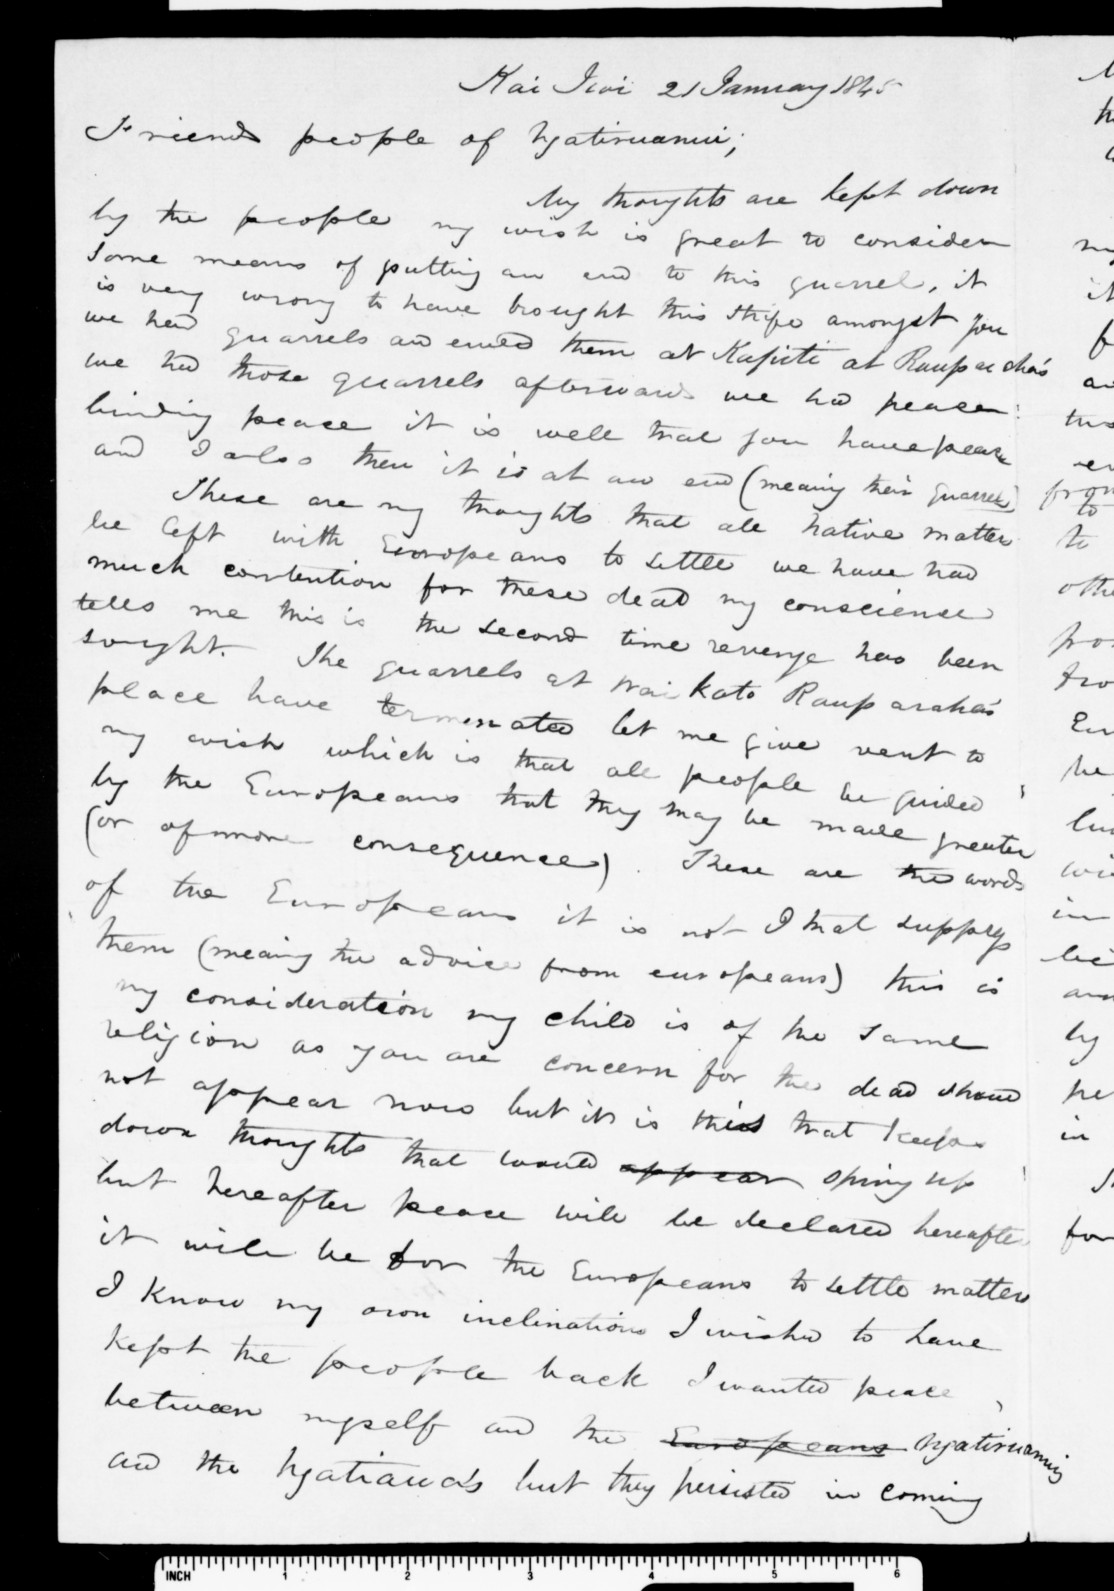 Kai Iwi 21 January 1845
Friends people of Ngatiruanui;
My thoughts are kept down
by the people my wish is great to consider
some means of putting an end to this quarrel, it
is very wrong to have brought this strife amongst you
we had quarrels and ended them at Kapiti at Rauparaha's
we had those quarrels afterwards we had peace
binding peace it is well that you have peace
and I also then it is at an end (meaning their quarrels)
These are my thoughts that all native matters
be left with Europeans to settle we have had
much contention for these dead my conscience
tells me this is the second time revenge has been
sought. The quarrels at Waikato Rauparaha's
place have terminated let me give vent to
my wish which is that all people be guided
by the Europeans that they may be made greater
(or of more consequence). These are the words
of the Europeans it is not I that supply
them (meaning the advice from europeans) this is
my consideration my child is of the same
religion as you are concern for the dead should
not appear now but it is this that keeps
down thoughts that would appear spring up
but hereafter peace will be declared hereafter
it will be for the Europeans to settle matters
I know my own inclinations I wished to have
kept the people back I wanted peace
between myself and the Europeans Ngatiruanui
and the Ngatiawa's but they persisted in coming
INCH 1 2 3 4 5 6